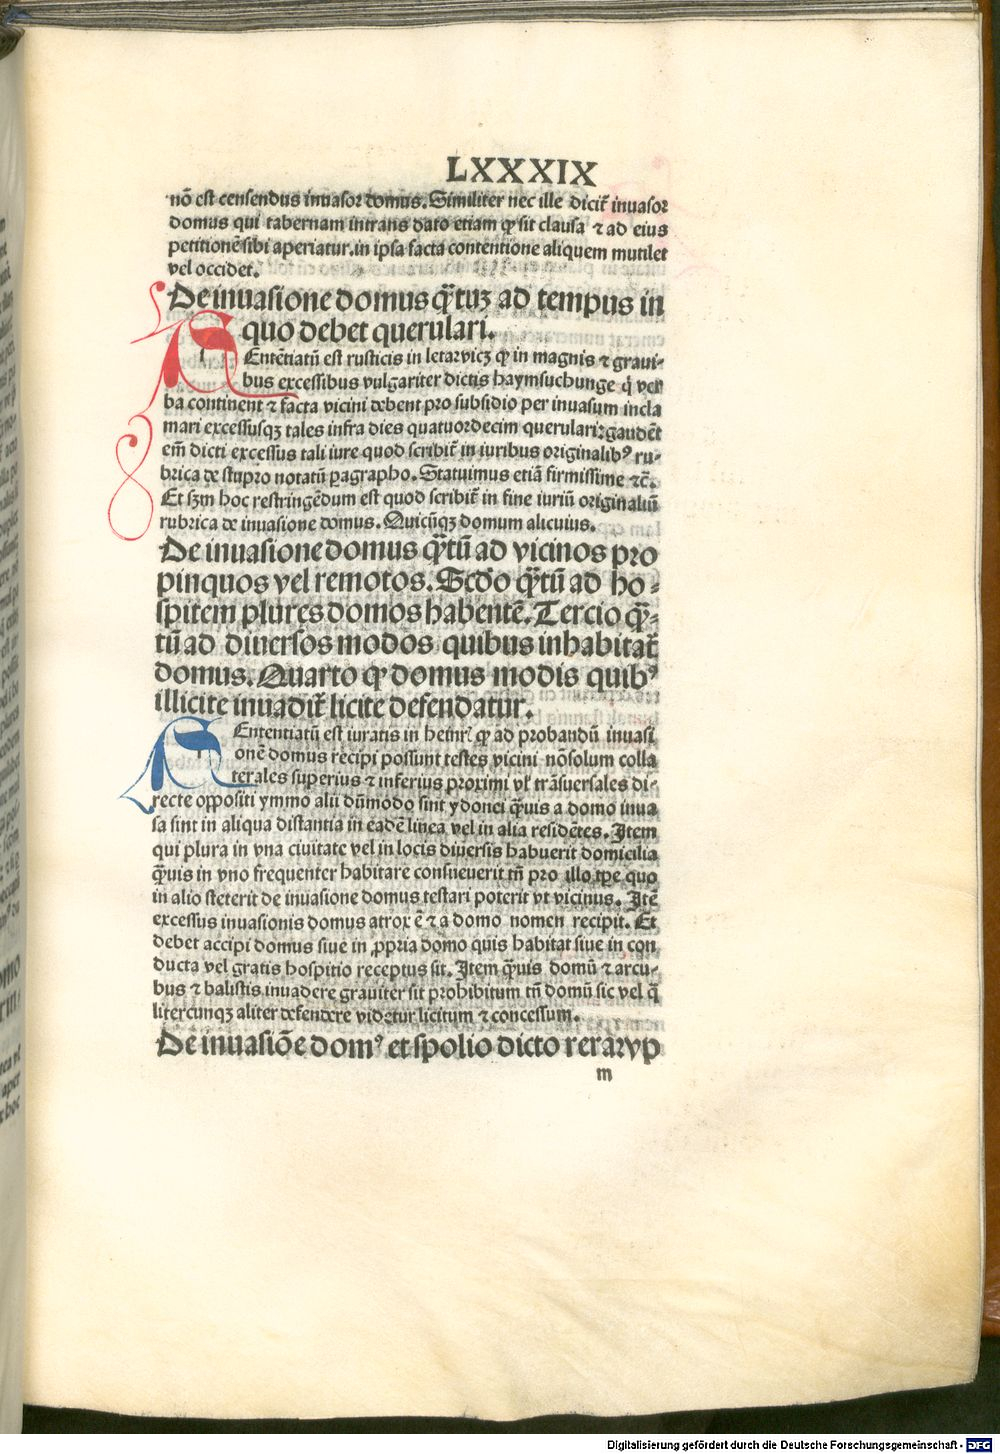 LXXXIX
nō est censendus inuasor domus. Similiter nec ille dicit̄ inuasor
domus qui tabernam intrans dato etiam ꝙ sit clausa ⁊ ad eius
petitionē sibi aperiatur. in ipsa facta contentione aliquem mutilet
vel occidet.
De inuasione domus q̄tuꝫ ad tempus in
quo debet querulari.
SEntētiatū est rusticis in letarvicꝫ ꝙ in magnis ⁊ graui⸗
bus excessibus vulgariter dictis haymsuchunge q̄ ver
ba continent ⁊ facta vicini debent pro subsidio per inuasum incla
mari excessusqꝫ tales infra dies quatuordecim querulari: gaudēt
em̄ dicti excessus tali iure quod scribit̄ in iuribus originalibꝰ ru⸗
brica de stupro notatū paragrapho. Statuimus etiā firmissime ⁊c̄.
Et hm̄ hoc restringēdum est quod scribit̄ in fine iuriū originaliū
rubrica de inuasione domus. Quicūqꝫ domum alicuius.
De inuasione domus q̄tū ad vicinos pro
pinquos vel remotos. Scd̄o q̄tū ad ho⸗
spitem plures domos habentē. Tercio q̄⸗
tū ad diuersos modos quibus inhabitat̄
domus. Quarto ꝙ domus modis quibꝰ
illicite inuadit̄ licite defendatur.
SEntentiatū est iuratis in heinrī ꝙ ad probandū inuasi
onē domus recipi possunt testes vicini nōsolum colla
terales superius ⁊ inferius proximi vl̄ trāsuersales di⸗
recte oppositi ymmo alii dūmodo sint ydonei q̄uis a domo inua
sa sint in aliqua distantia in eadē linea vel in alia residētes. Item
qui plura in vna ciuitate vel in locis diuersis habuerit domicilia
q̄uis in vno frequenter habitare consueuerit tn̄ pro illo tp̄e quo
in alio steterit de inuasione domus testari poterit vt vicinus. Itē
excessus inuasionis domus atrox ē ⁊ a domo nomen recipit. Et
debet accipi domus siue in ꝓpria domo quis habitat siue in con
ducta vel gratis hospitio receptus sit. Item q̄uis domū ⁊ arcu⸗
bus ⁊ balistis inuadere grauiter sit prohibitum tn̄ domū sic vel q̄
litercunqꝫ aliter defendere videtur licitum ⁊ concessum.
De inuasiōe domꝰ et spolio dicto rerarvp
m
Digitalisierung gefördert durch die Deutsche Forschungsgemeinschaft - DFG